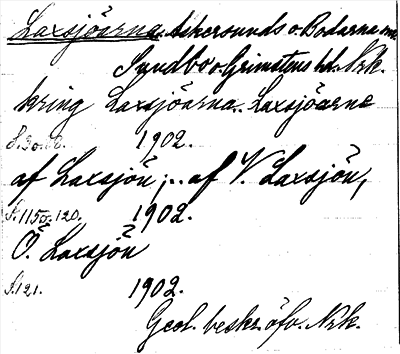 Laxsjöarna. Askersunds o. Bodarna sn.
Sundbo o. Grimstens hd. Nrk.
kring Laxsjöarna.. Laxsjöarne
1902.
af Laxsjön;.. af V. Laxsjön,
S. 115 o. 120. 1902.
Ö. Laxsjön
S. 121. 1902.
Geol. beskr. öfv. Nrk.